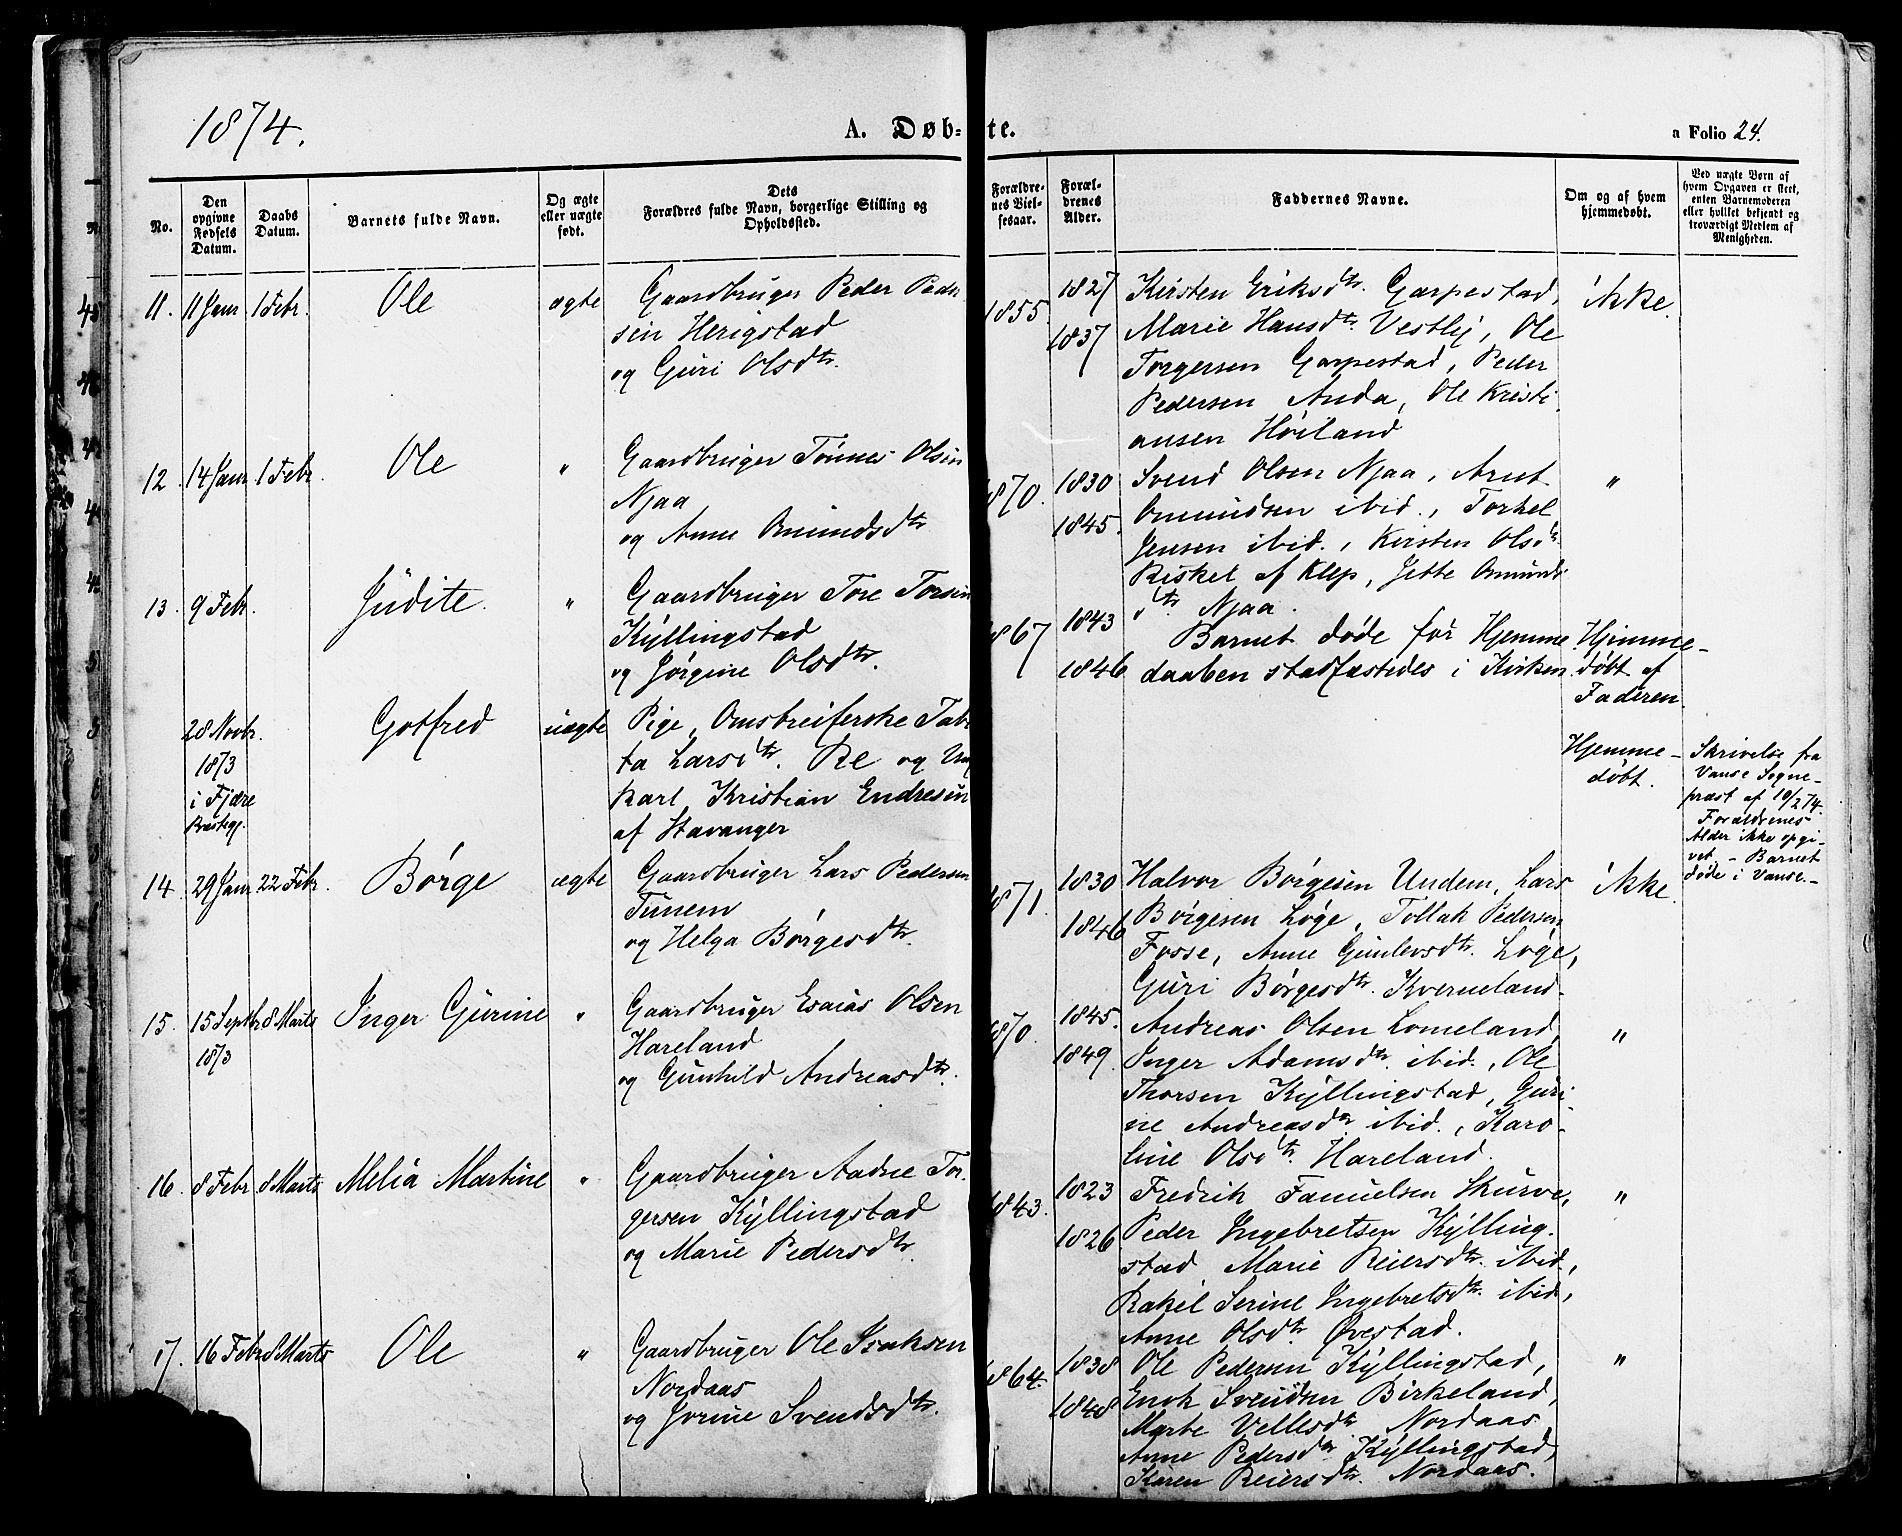 1874.
A. Døb-te.
a Folio 24.
No.
Den opgivne Fødsels Datum.
Daabs Datum.
Barnets fulde Navn.
Og ægte eller uægte født.
Dets Forældres fulde Navn, borgerlige Stilling og Opholdssted.
Forældrenes Vielsesaar.
Forældrenes Alder.
Faddernes Navne.
Om og af hvem hjemmedøbt.
Ved uægte Børn af hvem Opgaven er skeet, enten Barnemoderen eller hvilket bekjendt og troværdigt Medlem af Menigheden.
11. 11 Janr 1 Febr. Ole ægte
Gaardbruger Peder Peder
sen Herigstad
og Guri Olsdtr.
1855. 1827 1837
Kirsten Eriksdtr. Garpestad,
Marie Hansdtr. Vestly, Ole
Torgersen Garpestad, Peder
Pedersen Anda, Ole Kristi
ansen Høiland
ikke.
12. 14 Janr 1 Febr. Ole "
Gaardbruger Tønnes Olsen
Njaa
og Anne Omundsdtr
1870. 1830 1845.
Svend Olsen Njaa, Arnt
Omundsen ibid., Torkel
Jensen ibid., Kirsten Olsdtr
Riskel af Klep, Jette Omunds
dtr. Njaa.
"
13. 9 Febr. Judite. "
Gaardbruger Tore Torsen
Kyllingstad
og Jørgine Olsdtr.
1867 1843 1846
Barnet døde før Hjemme
daaben stadfæstedes i Kirken.
Hjemme-
døbt af
Faderen
28 Novbr.
1873
i Fjære
Præstegj.
Gotfred uægte
Pige, Omstreiferske Tab
ta Larsdtr. Re og Ung
karl Kristian Endresen
af Stavanger
Hjemme-
døbt.
Skrivelse fra
Vanse Sogne-
præst af 10/2 74.
Forældrenes
Alder ikke opgi-
vet. - Barnet
døde i Vanse.-
14. 29 Janr 22 Febr. Børge ægte
Gaardbruger Lars Pedersen
Tunem
og Helga Børgesdtr.
1871. 1830 1846
Halvor Børgesen Undem, Lars
Børgesen Løge, Tollak Pedersen
Fosse, Anne Gunlevsdtr. Løge,
Guri Børgesdtr. Kverneland.
ikke.
15. 15 Septbr 8 Marts Inger Gurine "
1873
Gaardbruger Esaias Olsen
Hareland
og Gunhild Andreasdtr.
1870. 1845. 1849.
Andreas Olsen Lomeland,
Inger Adamsdtr. ibid., Ole
Thorsen Kyllingstad, Guri
ne Andreasdtr ibid., Karo-
line Olsdtr. Hareland.
"
16. 8 Febr 8 Marts Melia Martine "
Gaardbruger Aadne Tor-
gersen Kyllingstad
og Marie Pedersdtr.
1843. 1823 1826
Fredrik Samuelsen Skurve,
Peder Ingebretsen Kylling-
stad Marie Reiersdtr. ibid,
Rakel Serine Ingebretsdtr. ibid,
Anne Olsdtr. Øvestad.
"
17. 16 Febr 8 Marts Ole "
Gaardbruger Ole Isaksen
Nordaas
og Jorine Svendsdtr.
1864. 1838 1848
Ole Pedersen Kyllingstad,
Enok Svendsen Birkeland,
Marte Vellesdtr Nordaas
Anne Pedersdtr Kyllingstad,
Karen Reiersdtr. Nordaas.
"